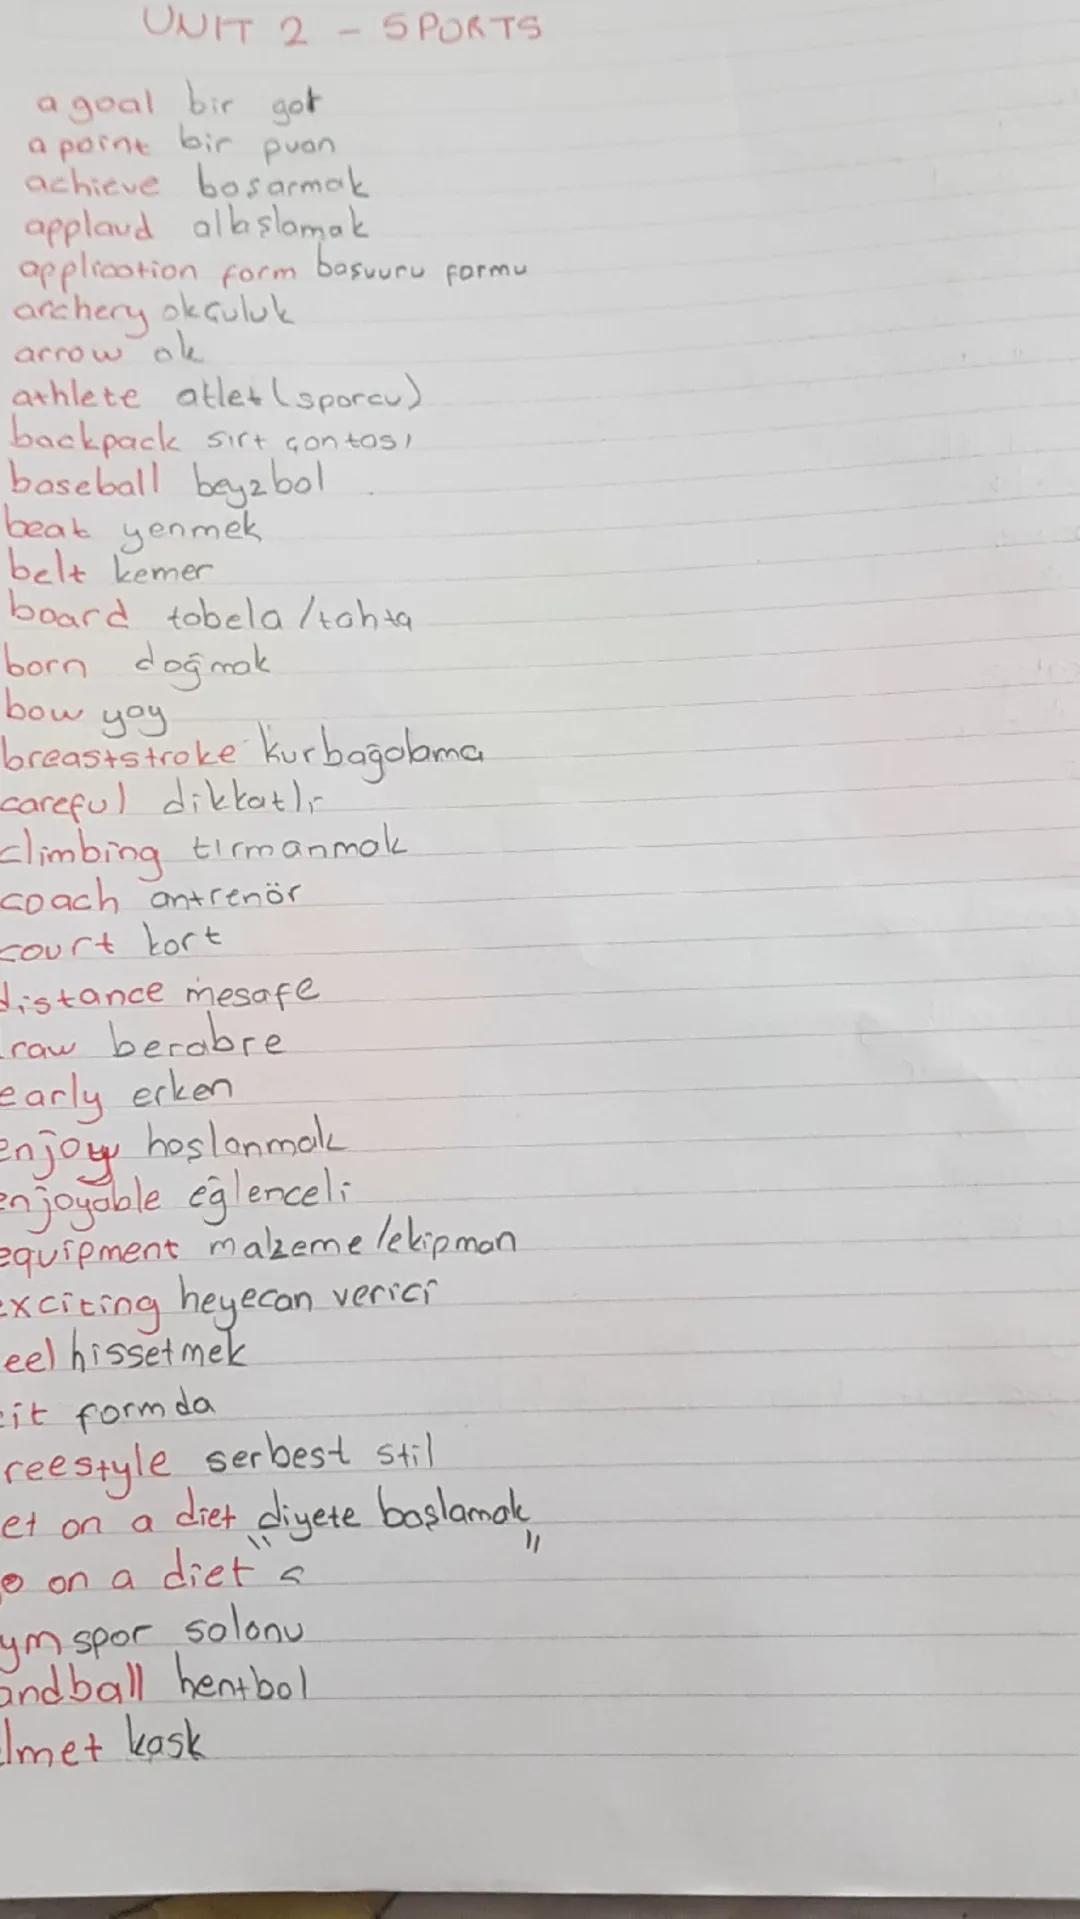 UNIT 2 - SPORTS
a goal bir gol
a point bir puan
achieve başarmak
applaud alkışlamak
application form başvuru formu
archery okçuluk
arrow ok
athlete atlet (sporcu)
backpack sırt çantası
baseball beyzbol
beat yenmek
belt kemer
board tabela / tahta
born doğmak
bow yay
breaststroke kurbağalama
careful dikkatli
climbing tırmanmak
coach antrenör
court kort
distance mesafe
raw berabre
early erken
enjoy hoşlanmak
enjoyable eğlenceli
equipment malzeme / ekipman
exciting heyecan verici
eel hissetmek
it formda
reestyle serbest stil
et on a diet diyete başlamak
o on a diet " "
ym spor salonu
andball hentbol
lmet kask